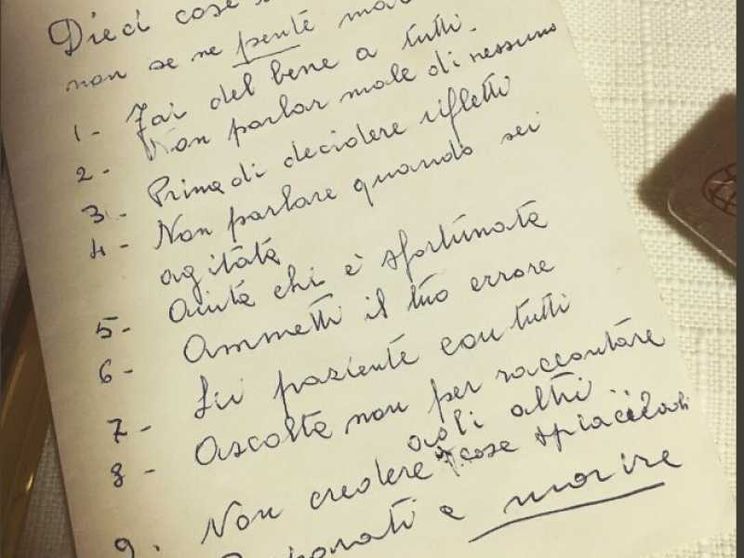 Dieci cose
non se ne pente mai
1- Fai del bene a tutti.
2- Non parlar male di nessuno
3- Prima di decidere rifletti
4- Non parlare quando sei
agitata
5- Aiuta chi è sfortunata
6- Ammetti il tuo errore
7- Sii paziente con tutti
8- Ascolta non per raccontare
agli altri
9. Non credere cose spiacevoli
a morire